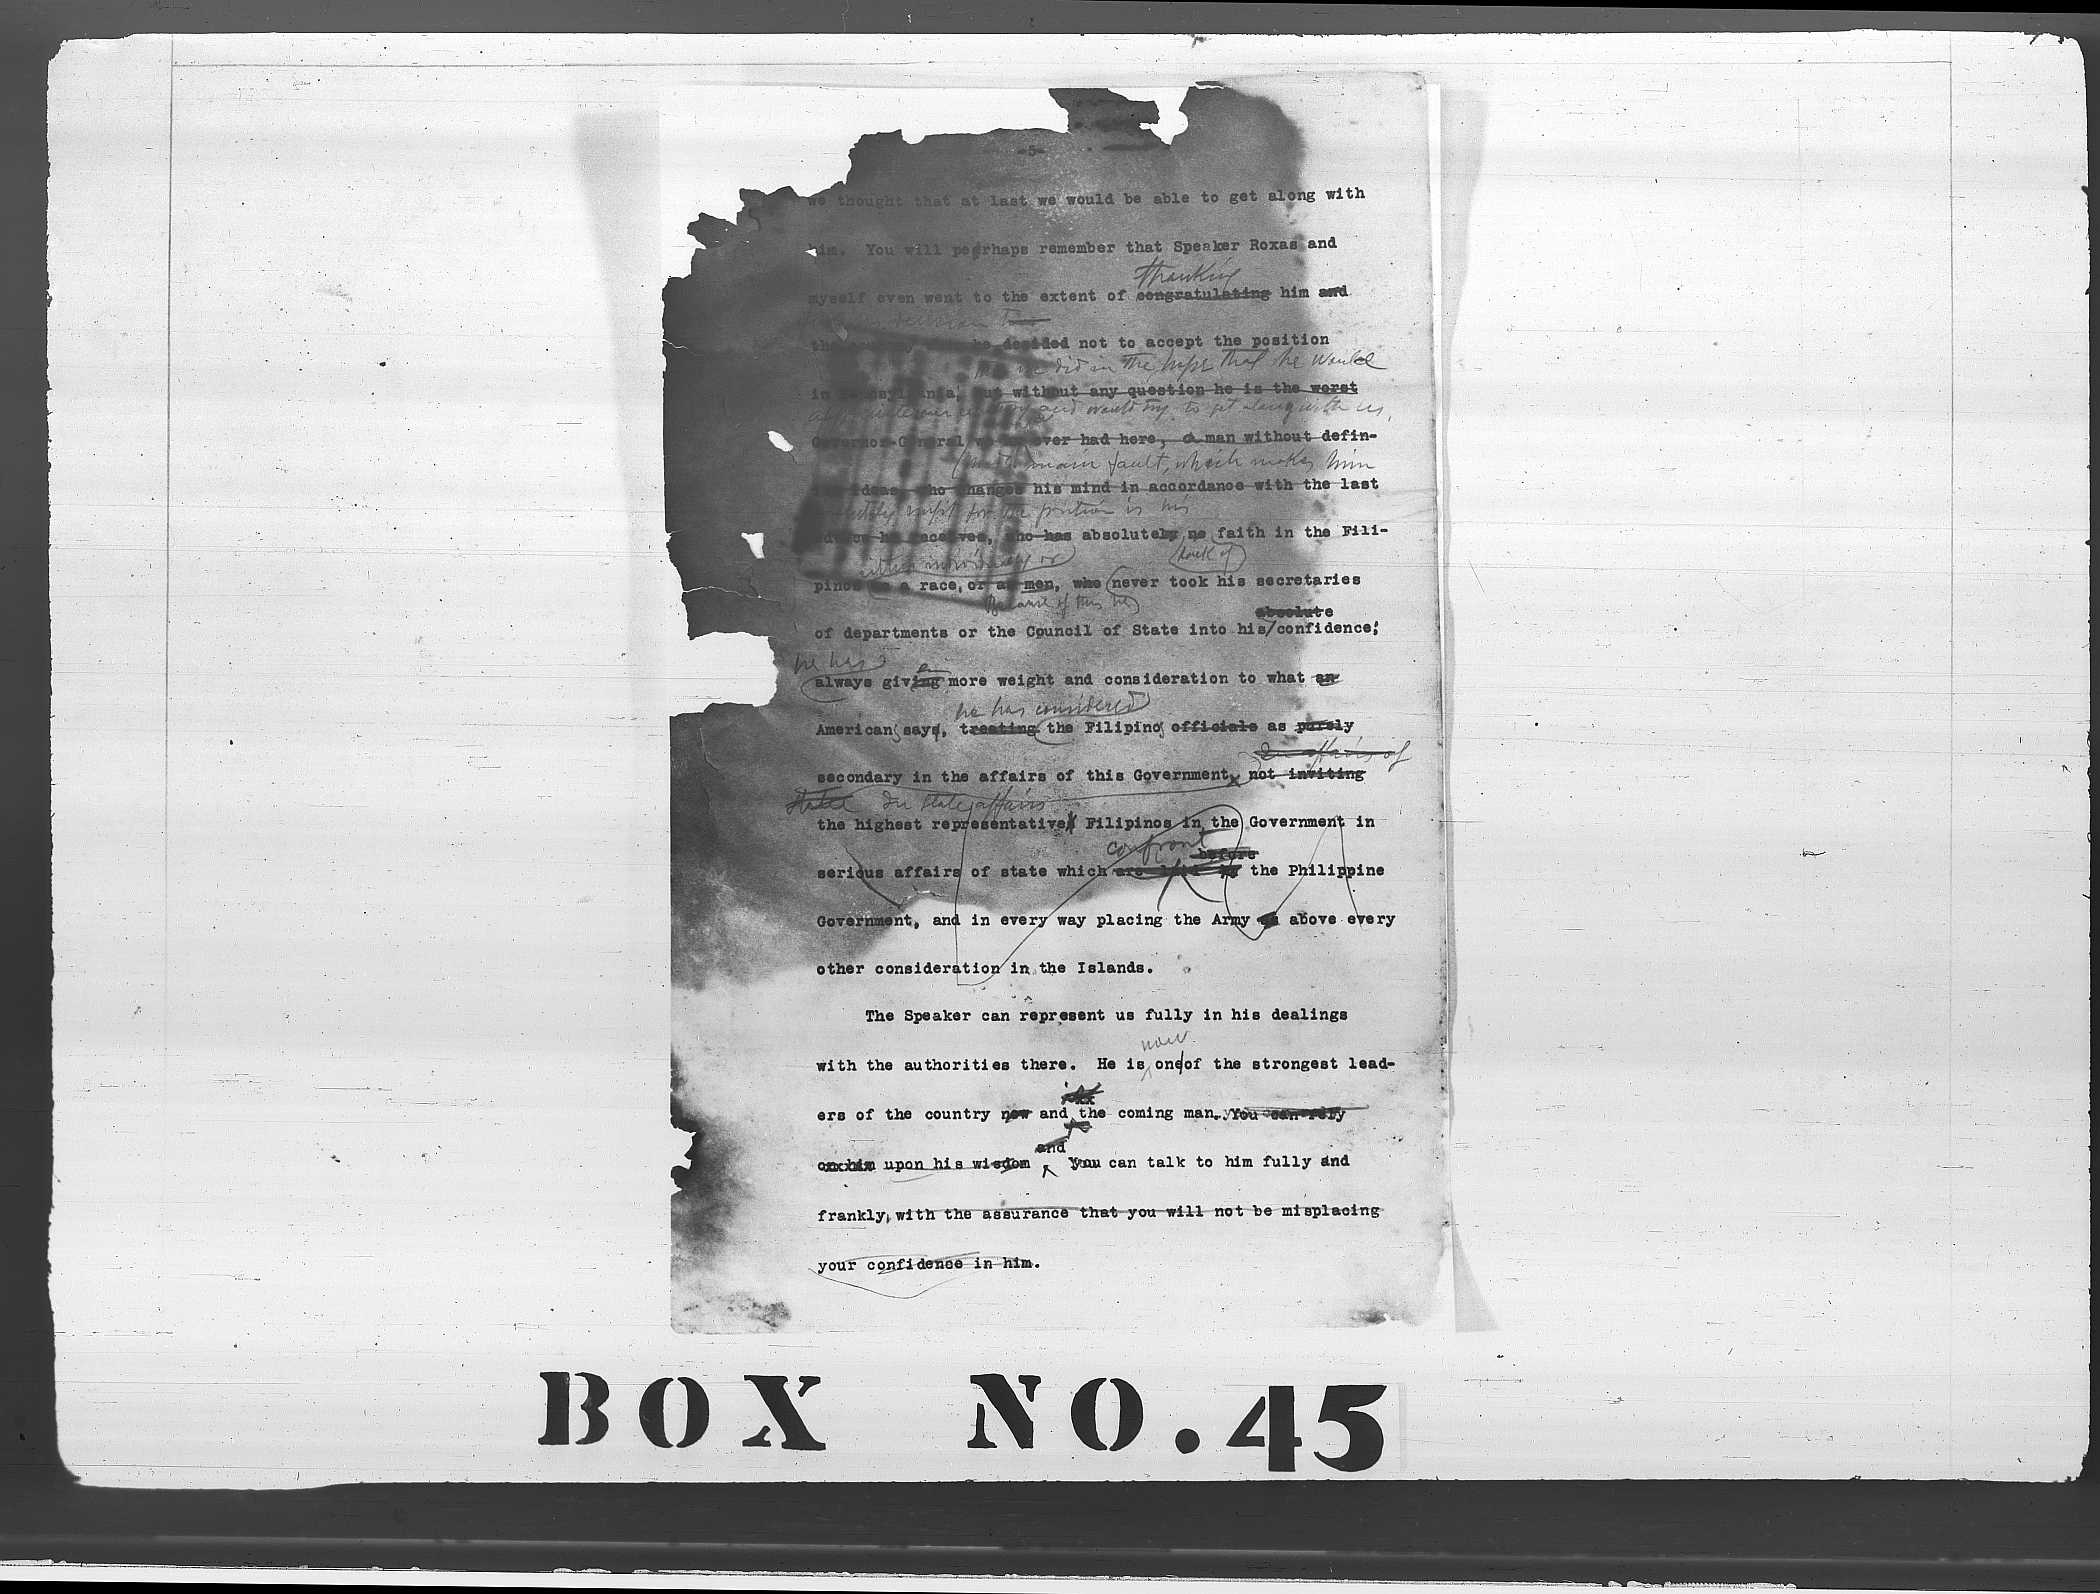 -5-
we thought that at last we would be able to get along with
him. You will perhaps remember that Speaker Roxas and
thanking
myself even went to the extent of congratulating him and
he decided not to accept the position
did in the hope that he would
in but without any question he is the worst
and would try to get along with us,
Governor-General we ever had here, a man without defin-
main fault, which makes him
ideas, who changes his mind in accordance with the last
unfit for the position is his
advice he receives, who has absolutely no faith in the Fili-
either individually or lack of
pinos as a race, or as men, who never took his secretaries
Because of this he
absolute
of departments or the Council of State into his/confidence;
he has
en
always giving more weight and consideration to what an
he has considered
Americans says, treating the Filipinos officials as purely
In affairs of
secondary in the affairs of this Government, not inviting
state In state affairs
the highest representative Filipinos in the Government in
confront
before
serious affairs of state which are laid by the Philippine
Government, and in every way placing the Army as above every
other consideration in the Islands.
The Speaker can represent us fully in his dealings
now
with the authorities there. He is one of the strongest lead-
ers of the country now and the coming man. You can rely
and
on him upon his wisdom You can talk to him fully and
frankly, with the assurance that you will not be misplacing
your confidence in him.
BOX NO. 45